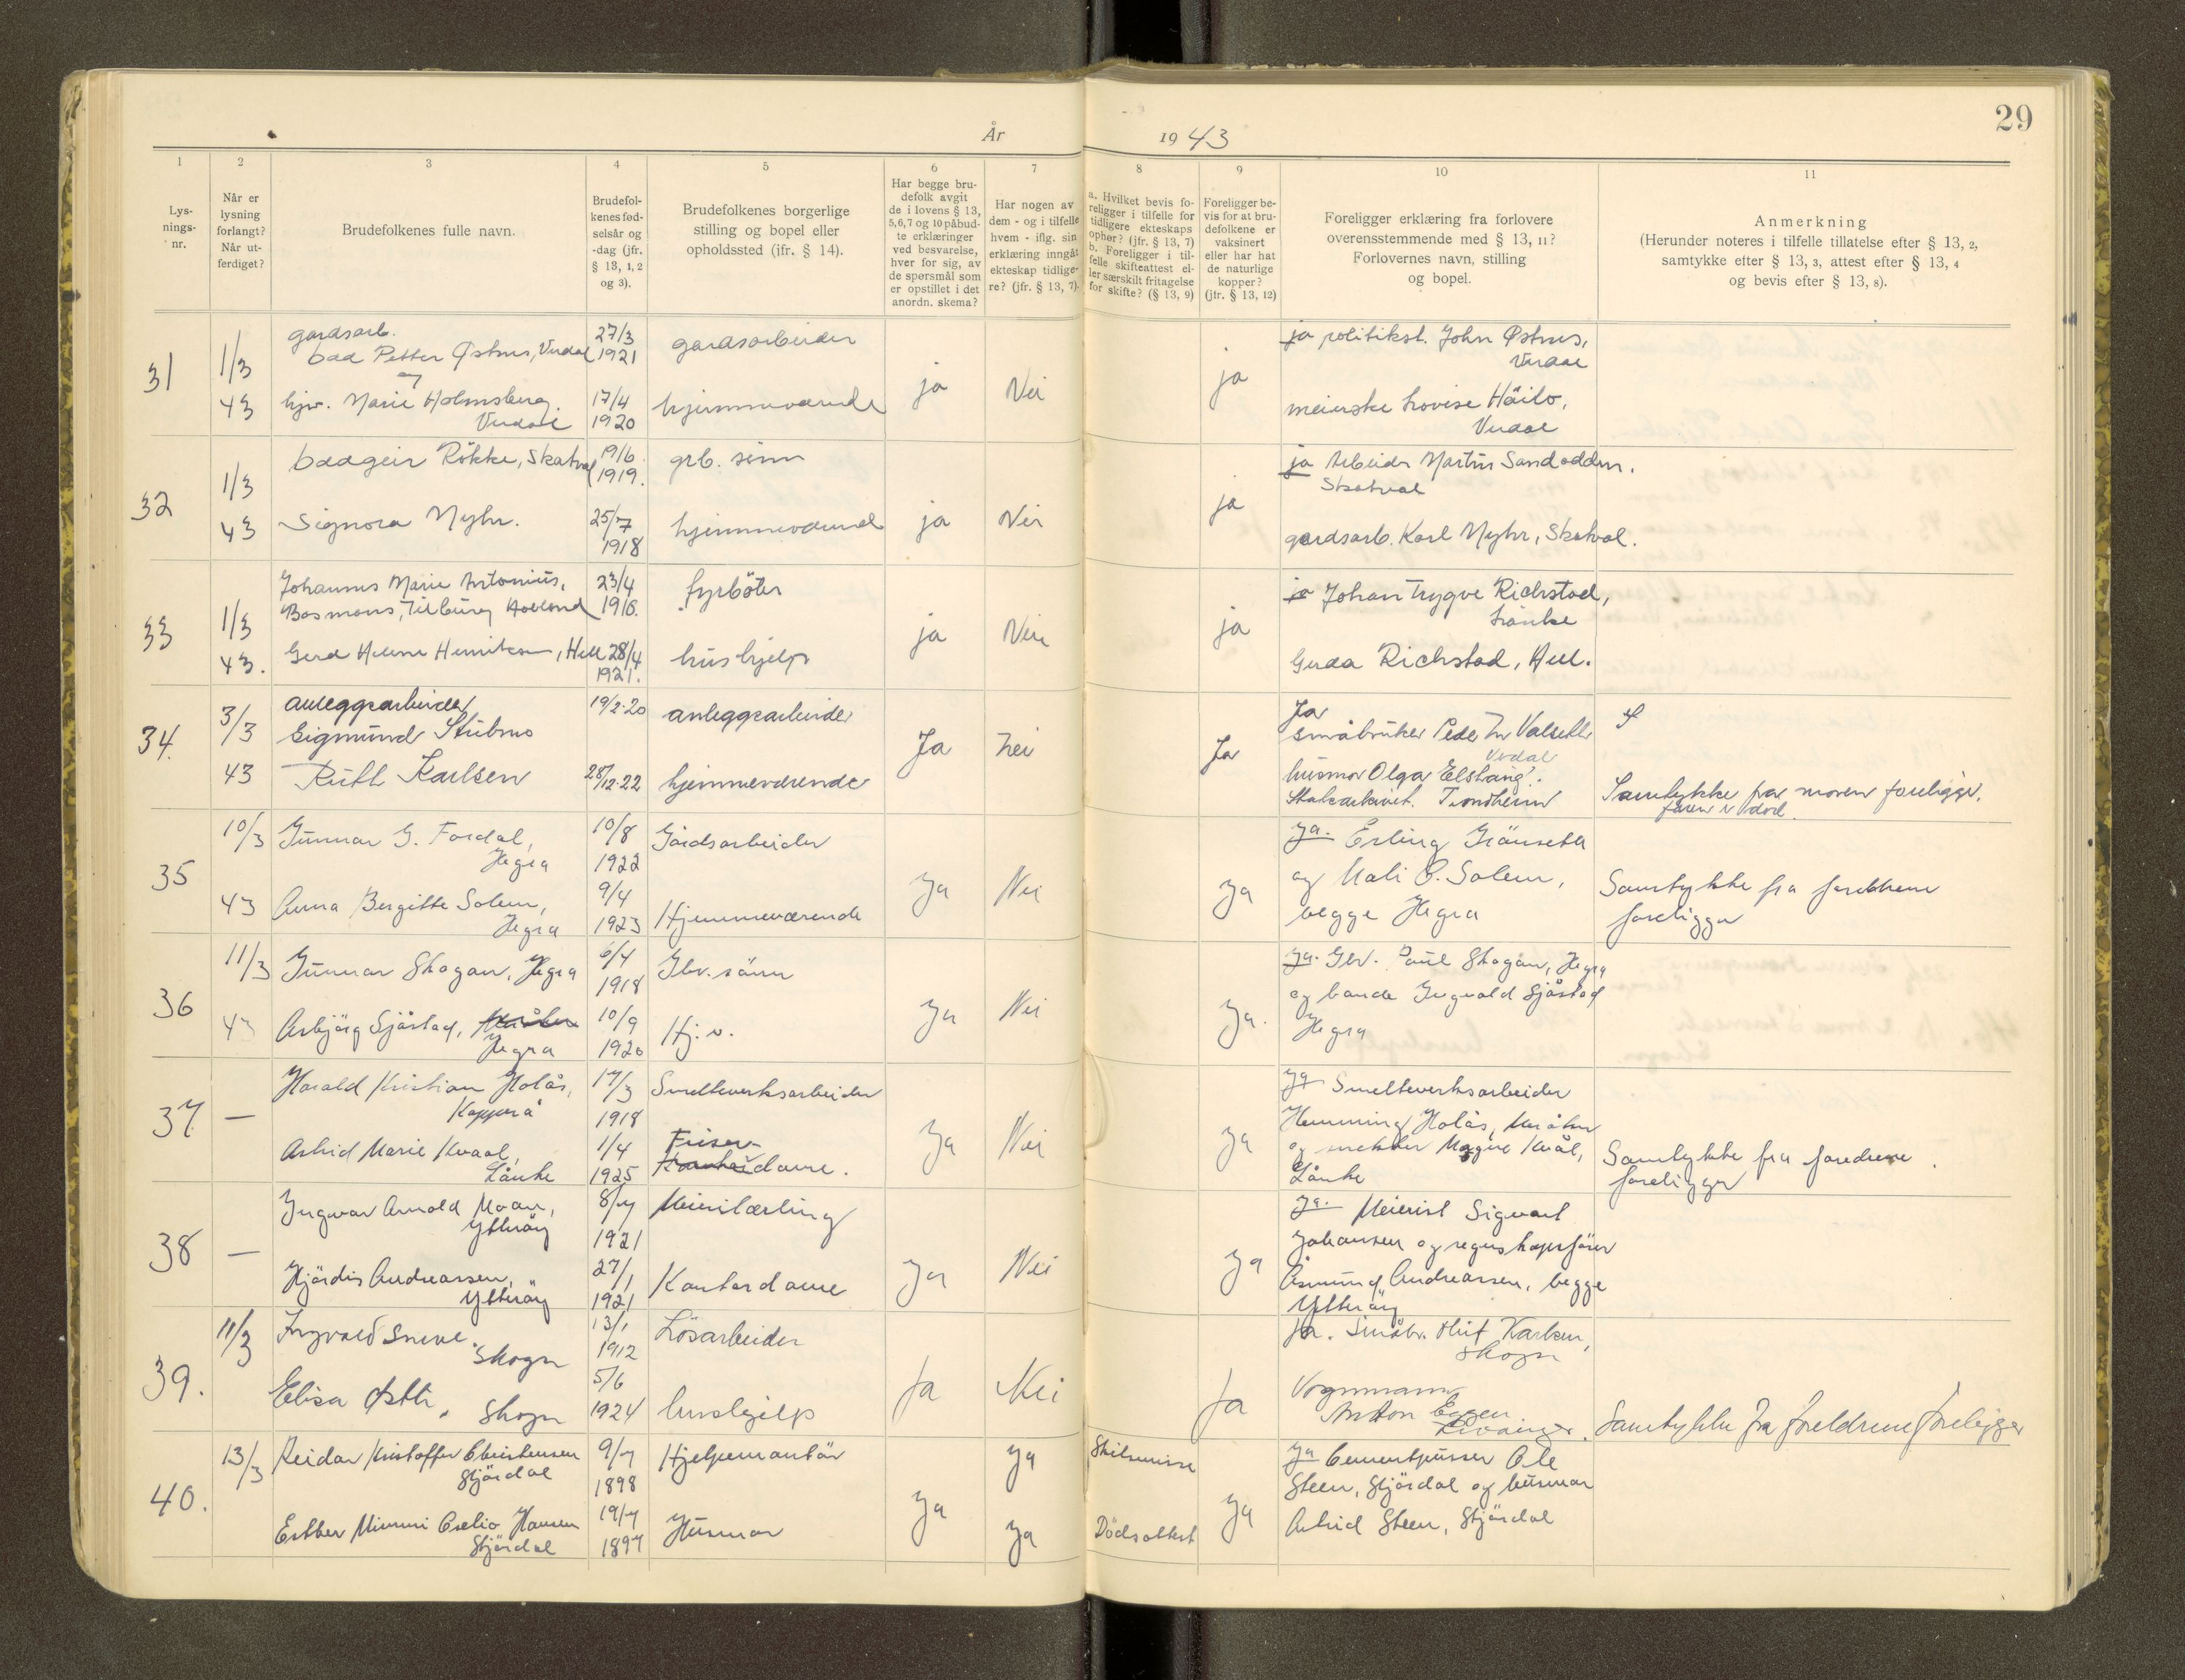 29
År 1943
1 2 3 4 5 6 7 8 9 10 11
Lys-
nings-
nr.
Når er
lysning
forlangt?
Når ut-
ferdiget?
Brudefolkenes fulle navn.
Brudefol-
kenes fød-
selsår og
-dag (jfr.
§ 13, 1, 2
og 3).
Brudefolkenes borgerlige
stilling og bopel eller
opholdssted (jfr. § 14).
Har begge bru-
defolk avgit
de i lovens § 13,
5,6,7 og 10 påbud-
te erklæringer
ved besvarelse,
hver for sig, av
de spørsmål som
er opstillet i det
anordn. skema?
Har nogen av
dem - og i tilfelle
hvem - iflg. sin
erklæring inngåt
ekteskap tidlige-
re? (jfr. § 13, 7).
a. Hvilket bevis fo-
religger i tilfelle for
tidligere ekteskaps
ophør? (jfr. § 13, 7)
b. Foreligger i til-
felle skifteattest el-
ler særskilt fritagelse
for skifte? (§ 13, 9)
Foreligger be-
vis for at bru-
defolkene er
vaksinert
eller har hat
de naturlige
kopper?
(jfr. § 13, 12)
Foreligger erklæring fra forlovere
overensstemmende med § 13, 11?
Forlovernes navn, stilling
og bopel.
Anmerkning
(Herunder noteres i tilfelle tillatelse efter § 13, 2,
samtykke efter § 13, 3, attest efter § 13, 4
og bevis efter § 13, 8).
31
1/3
43
gardsarb.
Petter Østnes, Verdal
og
hjv. Marie Holmsberg
Verdal
27/3
1921
17/4
1920
gardsarbeider
hjemmeværende
ja
Nei
ja
ja politikst. John Østnes,
Verdal
meierske Lovise Häilo,
Verdal
32
1/3
43
Oddgeir Rökke, Skatval
Signora Myhr.
19/6
1919.
25/7
1918
grb. sönn
hjemmeværende
ja
Nei
ja
ja Arbeider Martin Sandodden.
Skatval
gardsarb. Karl Myhr, Skatval.
33
1/3
43.
Johannes Marie Antonius,
Bosmans, Tilburg Holland
Gerd Helene Henriksen, Hell
23/4
1916.
28/4
1921.
fyrböter
hushjelp
ja
Nei
ja
ja Johan Trygve Richstad,
Lånke
Gerda Richstad, Hell.
34.
3/3
43
anleggsarbeider
Sigmund Stubmo
Ruth Karlsen
19/2-20
28/12-22
anleggsarbeider
hjemmeværende
Ja
nei
Ja
Ja
småbruker Peder
Verdal
husmor Olga
Statsarkivet. Trondheim
Samtykke fra moren foreligger.
faren er död.
35
10/3
43
Gunnar G. Fordal,
Hegra
Anna Bergitte Solem,
Hegra
10/8
1922
9/4
1923
Gårdsarbeider
Hjemmeværende
Ja
Nei
Ja
Ja. Erling
og Mali O. Solem,
begge Hegra
Samtykke fra foreldrene
foreligger
36
11/3
43
Gunnar Skogan, Hegra
Asbjörg Sjåstad,
Hegra
6/4
1918
10/9
1920
Gbr. sönn
Hj. v.
Ja
Nei
Ja.
Ja. Gbr. Paul Skogan, Hegra
og bonde Ingvald Sjåstad
Hegra
37.
—
Harald Kristian Holås,
Kopperå
Astrid Marie Kvaal,
Lånke
17/3
1918
1/4
1925
Smelteverksarbeider
Friser-
dame.
Ja
Nei
Ja
Ja Smelteverksarbeider
Hemming Holås, Meråker
og snekker Magne Kvål,
Lånke
Samtykke fra foreldrene
foreligger
38
—
Ingvar Arnold Moan,
Ytteröy
Hjördis Andreassen,
Ytteröy
8/7
1921
27/1
1921
Meierilærling
Kontordame
Ja
Nei
Ja
Ja. Meierist Sigvart
Johansen og regnskapsförer
Åsmund Andreassen, begge
Ytteröy
39.
11/3
Ingvald Sneve.
Skogn
Elisa Østli, Skogn
13/1
1912
5/6
1924
Lösarbeider
hushjelp
Ja
Nei
Ja
Ja. Småbr. Oluf Karlsen,
Skogn
Vognmann
Anton Eggen
Levanger.
Samtykke fra foreldrene foreligger
40.
13/3
Reidar Kristoffer Christensen
Stjördal
Esther Mimmi Hansen
Stjördal
9/7
1898
19/7
1897
Hjelpemontör
Husmor
Ja
Ja
Ja
Skilsmisse
Dödsattest
Ja
Ja Cementpusser Ole
Steen, Stjördal og husmor
Astrid Steen, Stjördal